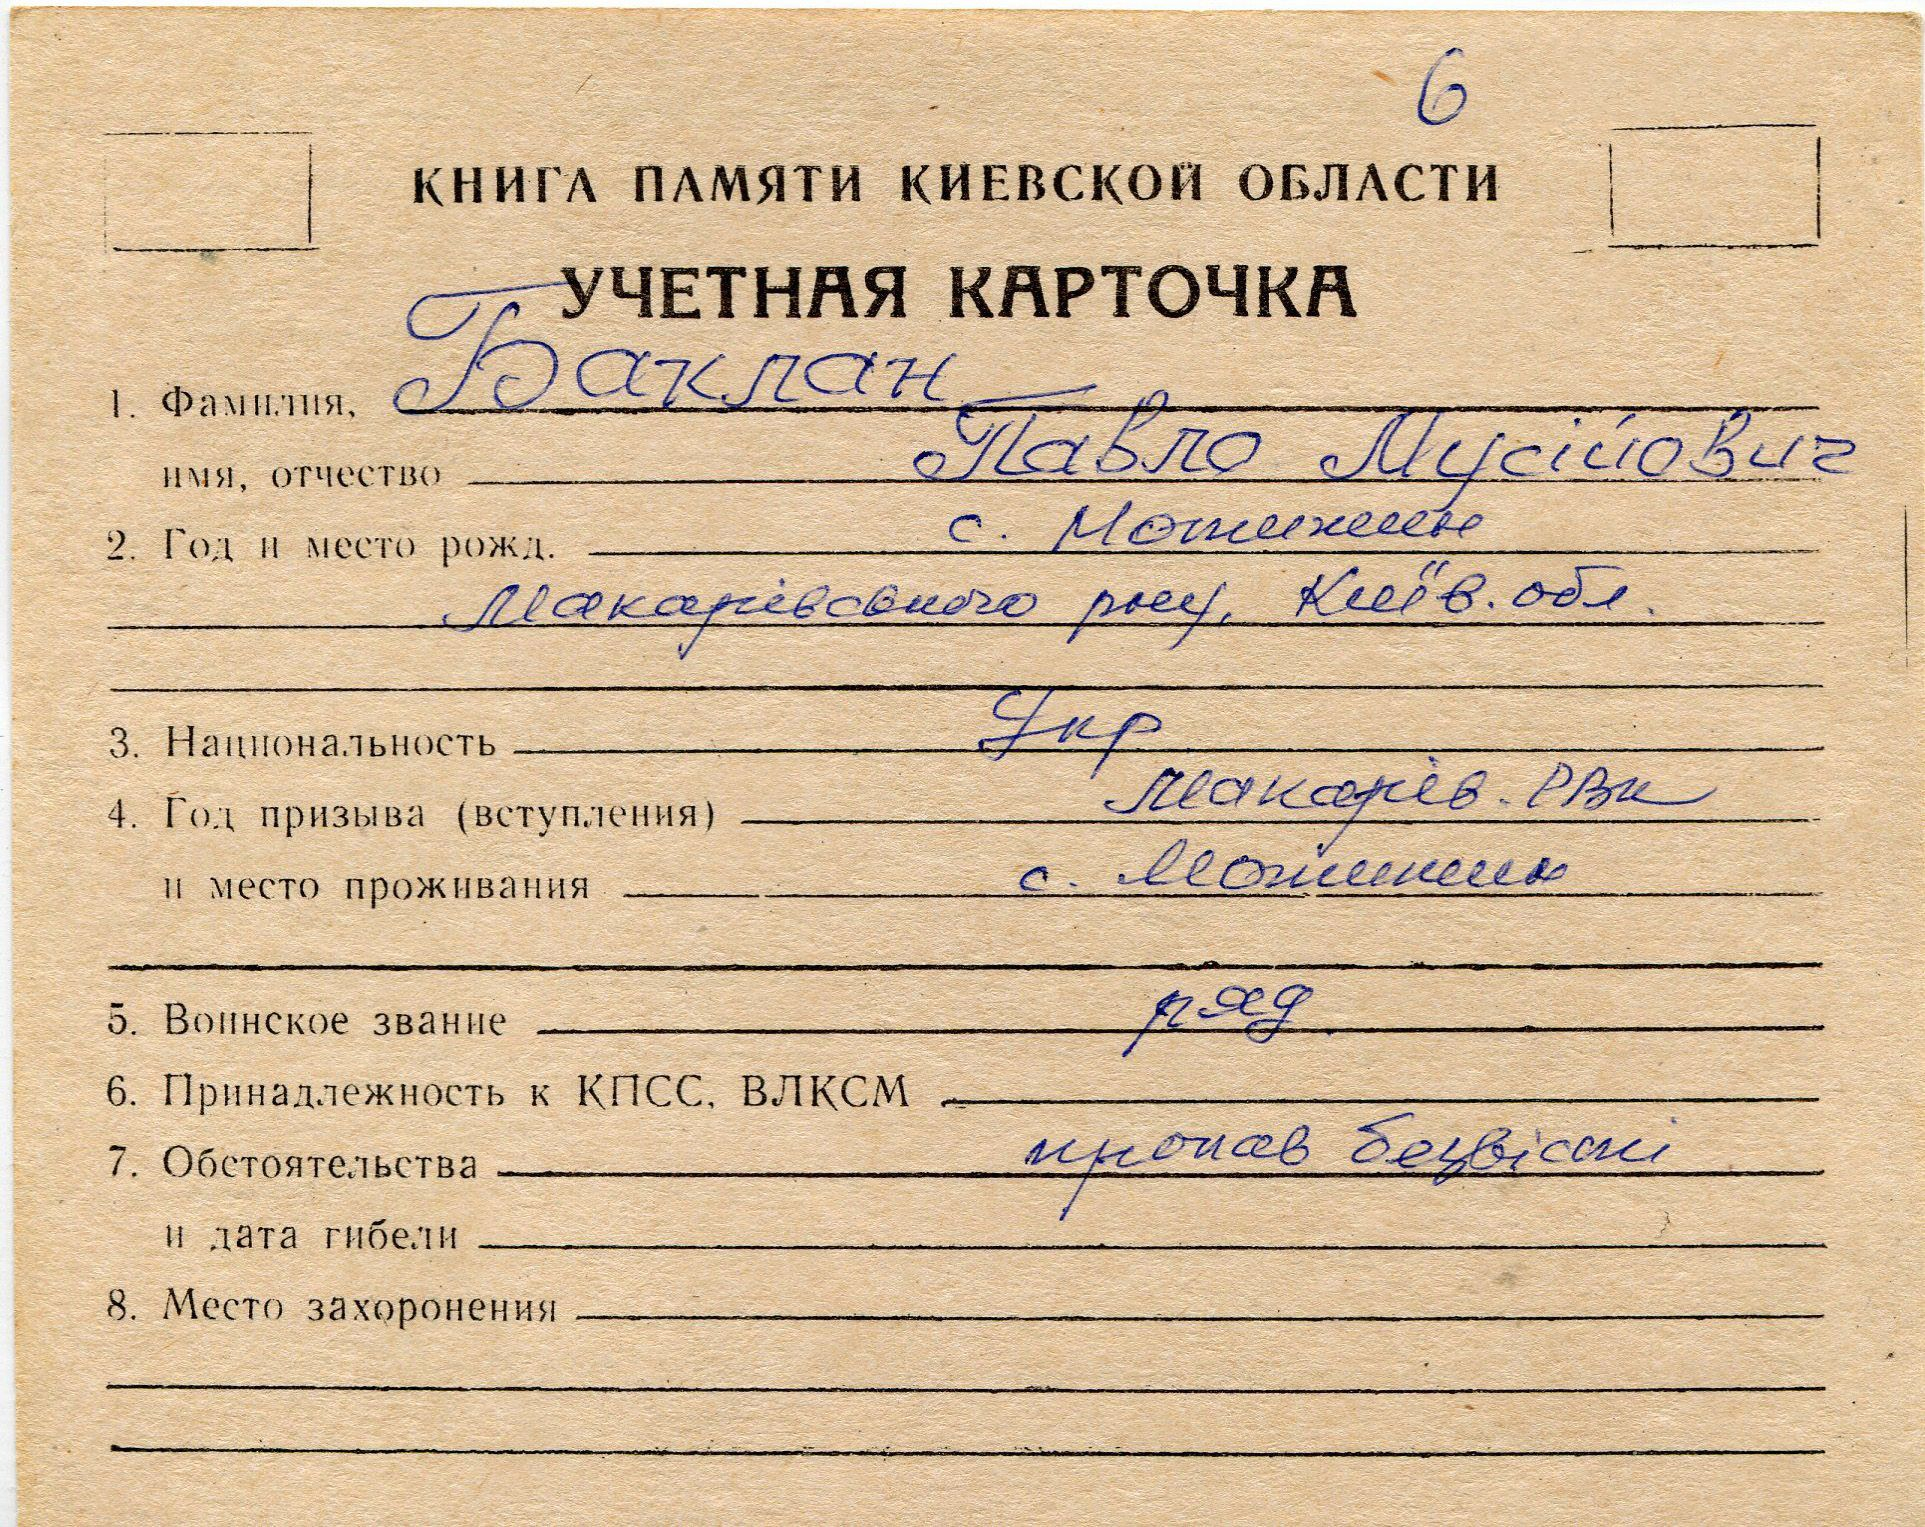 6
КНИГА ПАМЯТИ КИЕВСКОЙ ОБЛАСТИ
УЧЕТНАЯ КАРТОЧКА
1. Фамилия, Баклан
имя, отчество Павло Мусійович
2. Год и место рожд. с. Мотижин
Макарівського р-ну, Київ. обл.
3. Национальность Укр
4. Год призыва (вступления) Макарів. РВК
и место проживания с. Мотижин
5. Воинское звание ряд.
6. Принадлежность к КПСС, ВЛКСМ
7. Обстоятельства пропав безвісті
и дата гибели
8. Место захоронения